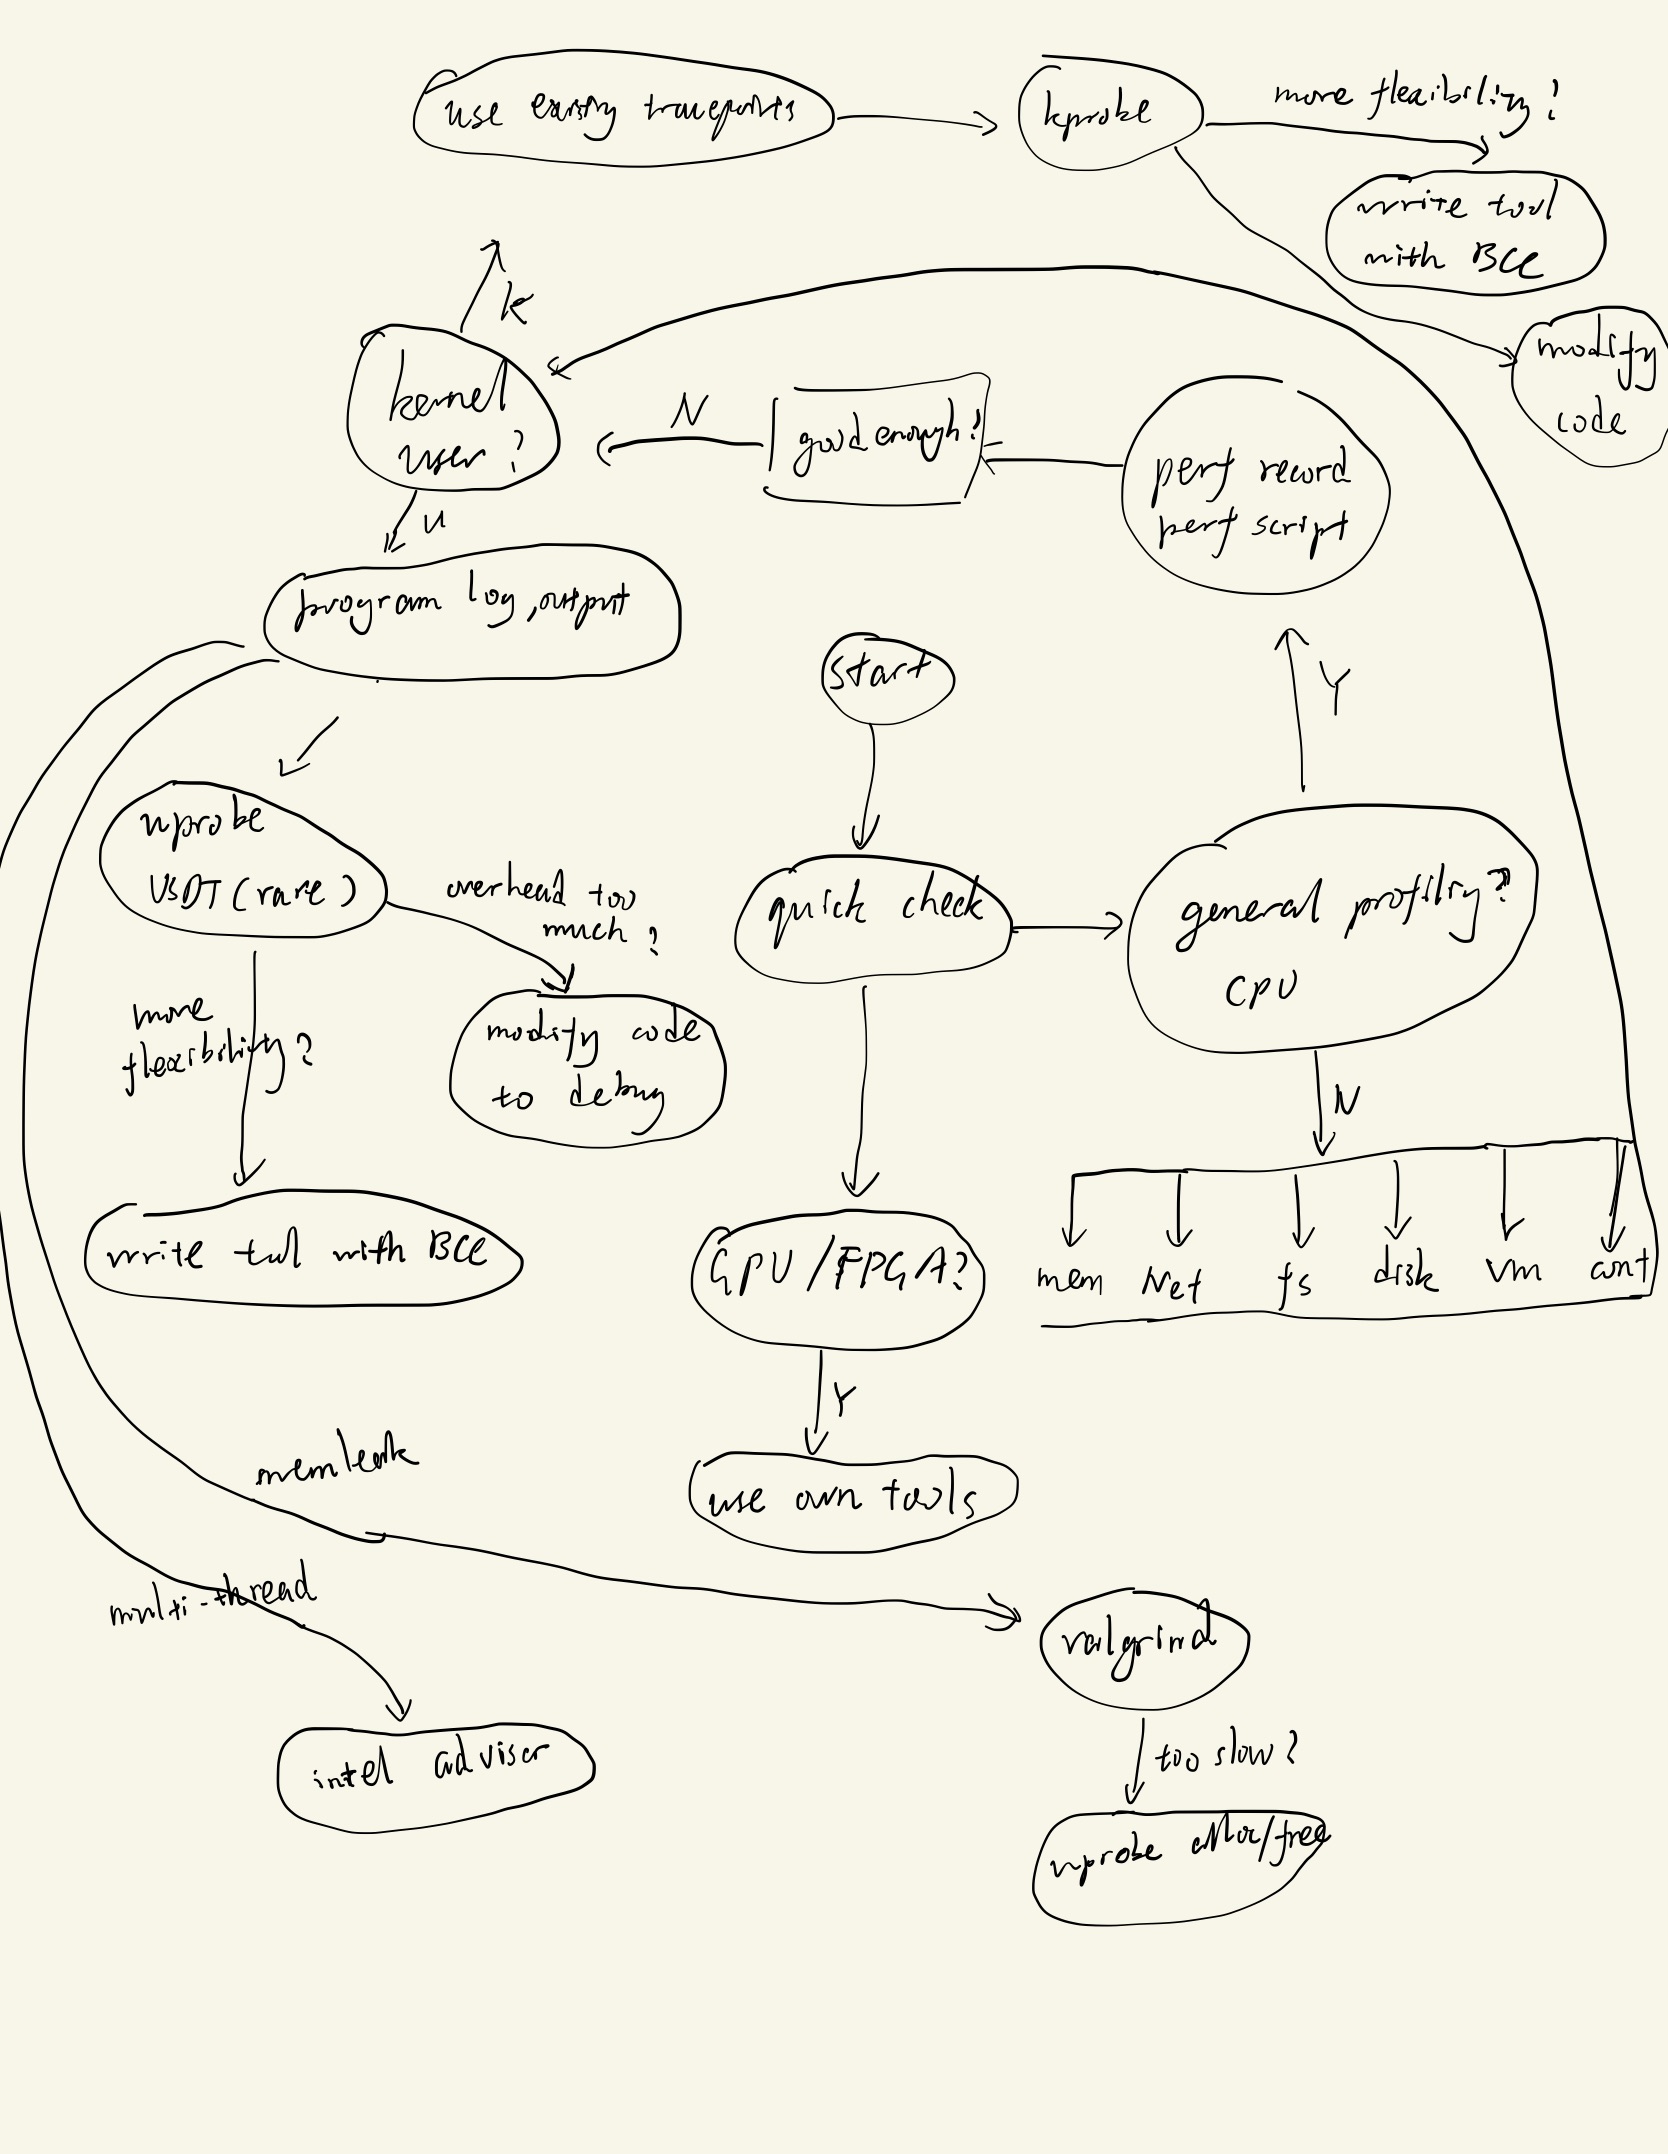 use existing tracepoints
kprobe
more flexibility?
write tool
with BCC
modify
code
k
kernel
user?
N
good enough?
perf record
perf script
u
program log, output
start
Y
uprobe
USDT (rare)
overhead too
much?
quick check
general profiling?
CPU
more
flexibility?
modify code
to debug
N
write tool with BCC
GPU/FPGA?
mem
Net
fs
disk
vm
cont
Y
memleak
use own tools
multi-thread
valgrind
intel advisor
too slow?
uprobe alloc/free